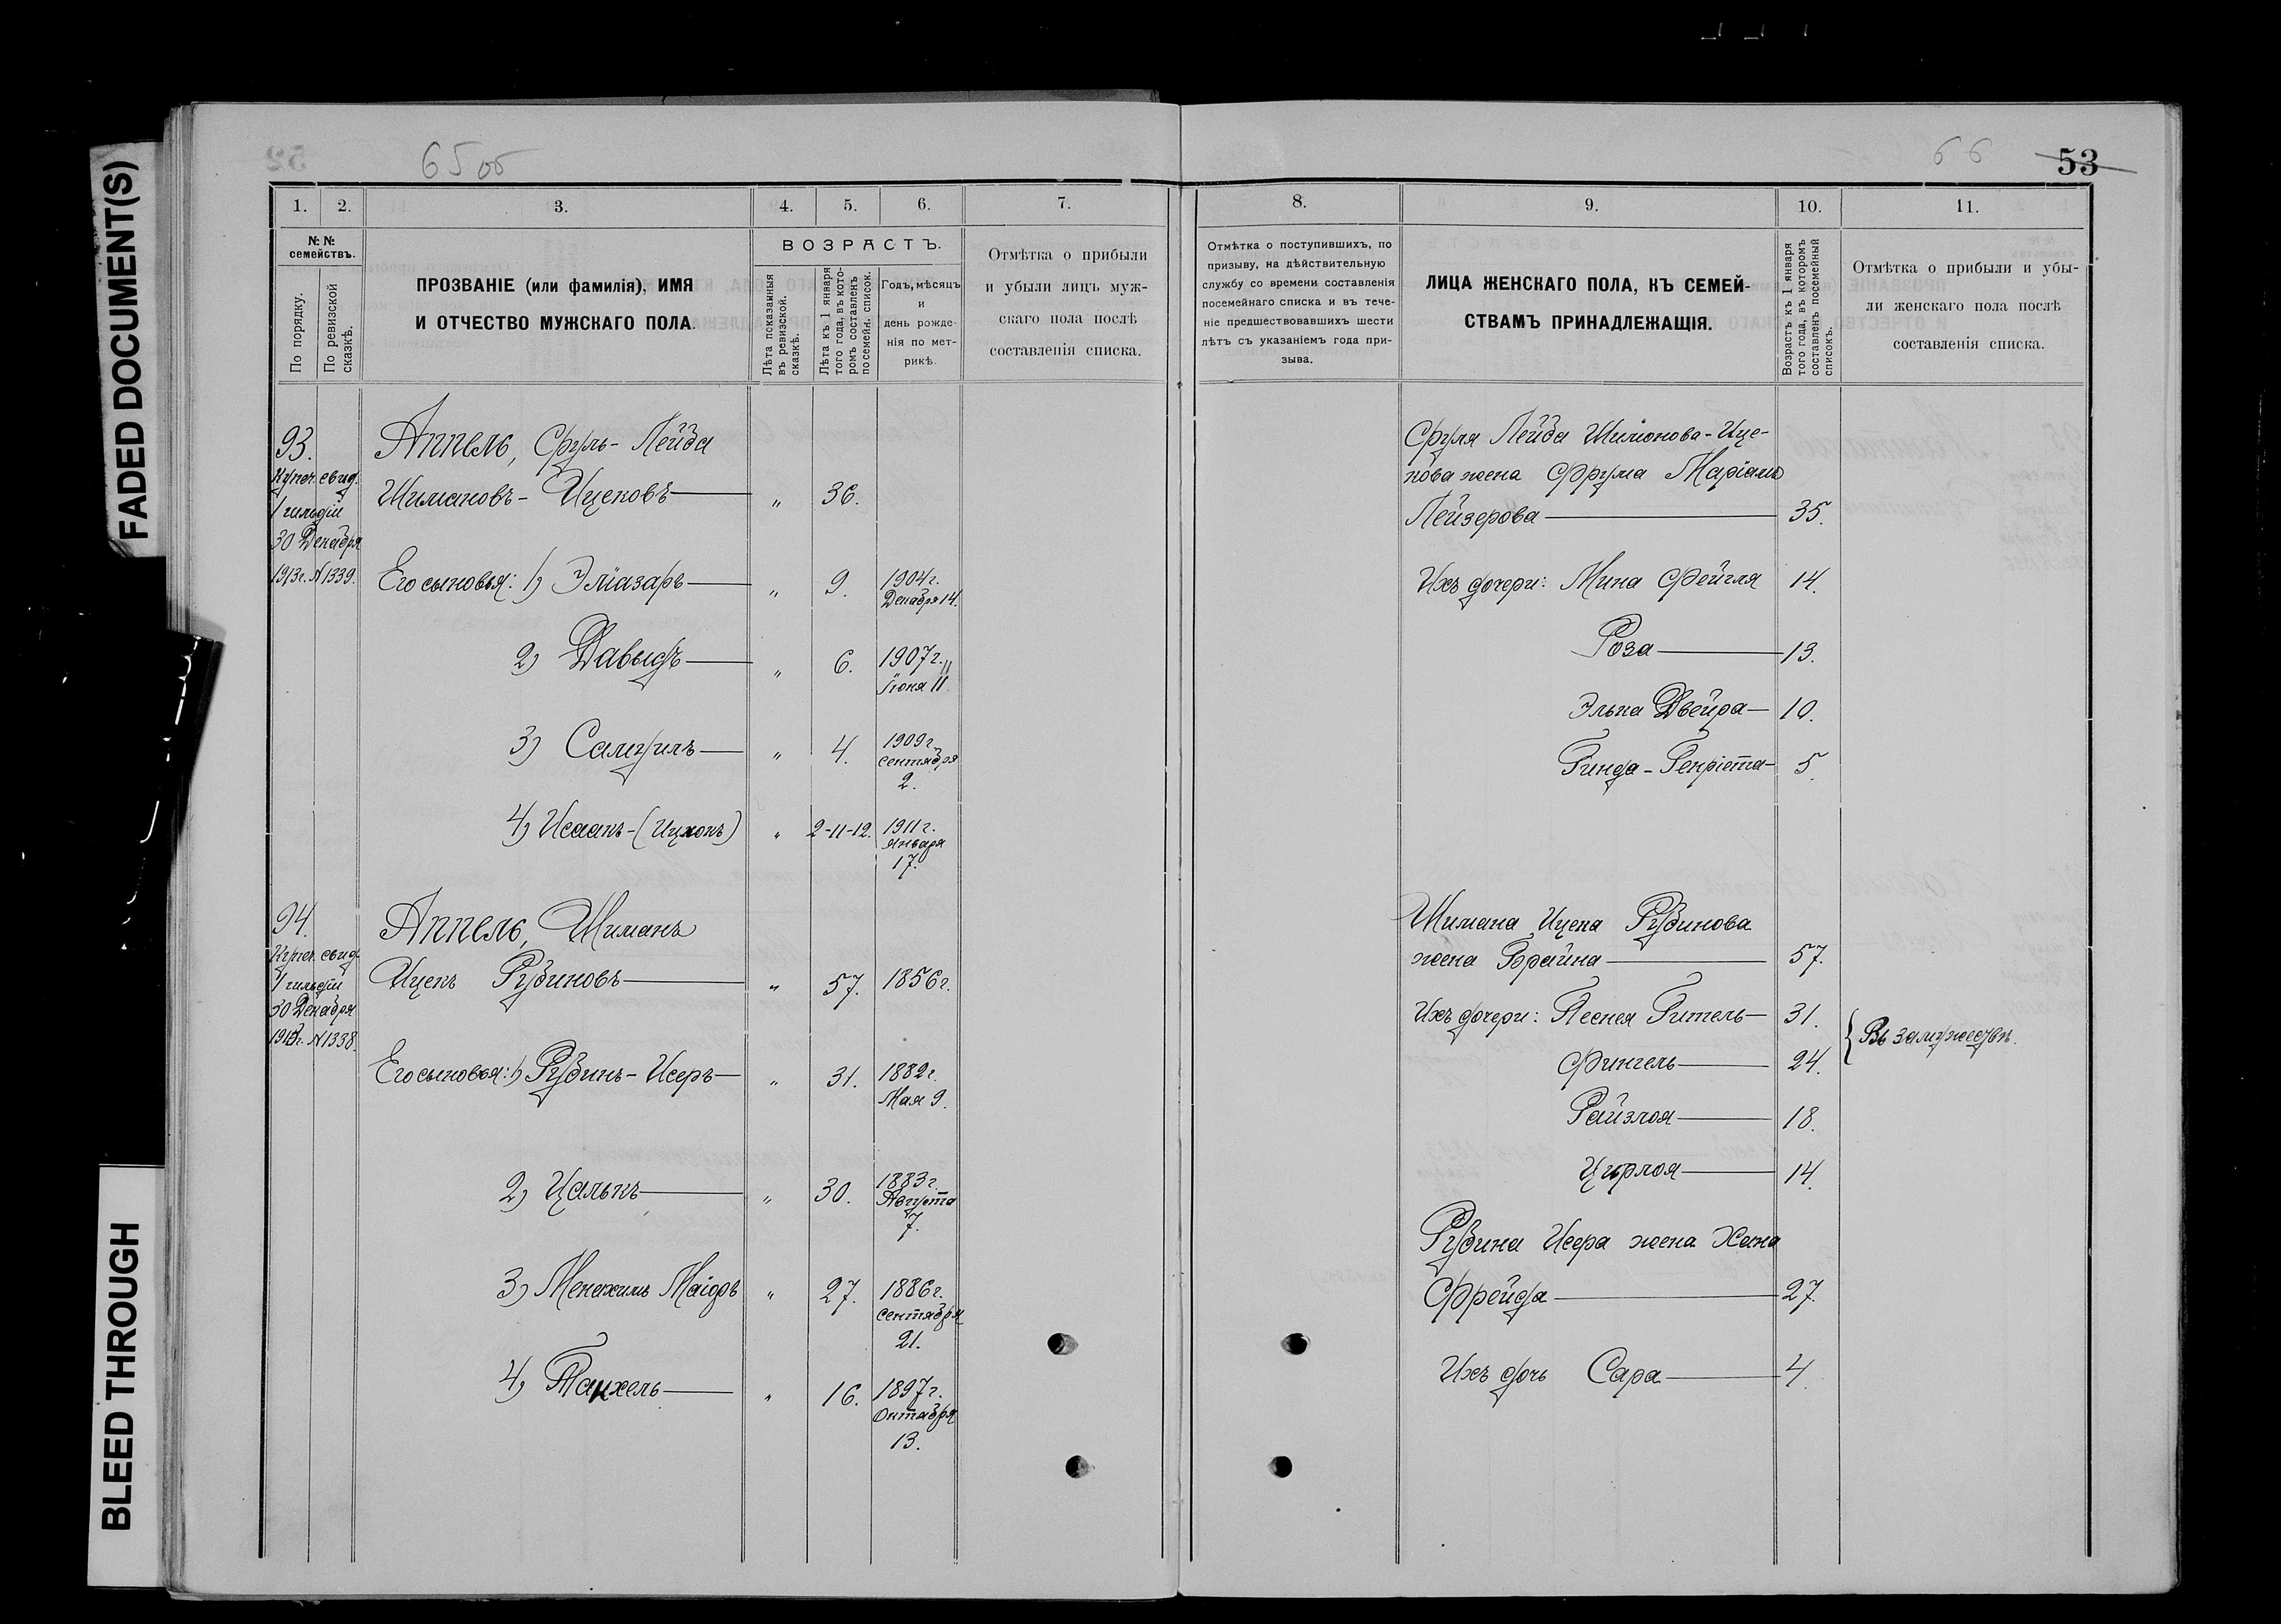 FADED DOCUMENT(S)
BLEED THROUGH
65 об
1.
2.
3.
4.
5.
6.
7.
№ №
семействъ.
По порядку.
По ревизской
сказкѣ.
ПРОЗВАНІЕ (или фамилія), ИМЯ
И ОТЧЕСТВО МУЖСКАГО ПОЛА.
ВОЗРАСТЪ.
Лѣта показанныя
въ ревизской.
сказкѣ.
Лѣта къ 1 января
того года, въ кото-
ромъ составленъ
посемейн. список.
Годъ, мѣсяцъ
и
день рожде-
нія по мет-
рикѣ.
Отмѣтка о прибыли
и убыли лицъ муж-
скаго пола послѣ
составленія списка.
93.
Купеч. свид.
1 гильдіи
30 Декабря
1913г. № 1339.
Аппель, Сруль-Лейба
Шимановъ-Ицековъ " 36.
Его сыновья: 1) Эліазаръ " 9. 1904 г.
Декабря 14.
2) Давыдъ " 6. 1907 г.
Іюня 11.
3) Самуилъ " 4. 1909 г.
Сентября
2.
4) Исаакъ-(Ицхокъ) " 2-11-12. 1911 г.
Января
17.
94.
Купеч. свид.
1 гильдіи
30 Декабря
1913г. № 1338.
Аппель, Шиманъ
Ицекъ Рубиновъ " 57. 1856 г.
Его сыновья: 1) Рубинъ-Исеръ " 31. 1882 г.
Мая 9.
2) Цалькъ " 30. 1883 г.
Августа
7.
3) Менахимъ Маіоръ " 27. 1886 г.
Сентября
21.
4) Танхель " 16. 1897 г.
Октября
13.
66
53
8.
9.
10.
11.
Отмѣтка о поступившихъ, по
призыву, на дѣйствительную
службу со времени составленія
посемейнаго списка и въ тече-
ніе предшествовавшихъ шести
лѣтъ съ указаніемъ года при-
зыва.
ЛИЦА ЖЕНСКАГО ПОЛА, КЪ СЕМЕЙ-
СТВАМЪ ПРИНАДЛЕЖАЩІЯ.
Возрастъ къ 1 января
того года, въ которомъ
составленъ посемейный
списокъ.
Отмѣтка о прибыли и убы-
ли женскаго пола послѣ
составленія списка.
Сруля Лейба Шимонова-Ице-
кова жена Фрума Маріамъ
Лейзерова 35.
Ихъ дочери: Мина Фейгля 14.
Роза 13.
Элька Двейра 10.
Гинда-Генріета 5.
Шимана Ицека Рубинова
жена Брайна 57.
Ихъ дочери: Пескея Гитель 31.
Фингель 24.
{ Въ замужествѣ.
Райзлоя 18.
Цирлоя 14.
Рубина Исера жена Хана
Фрейда 27.
Ихъ дочь Сара 4.